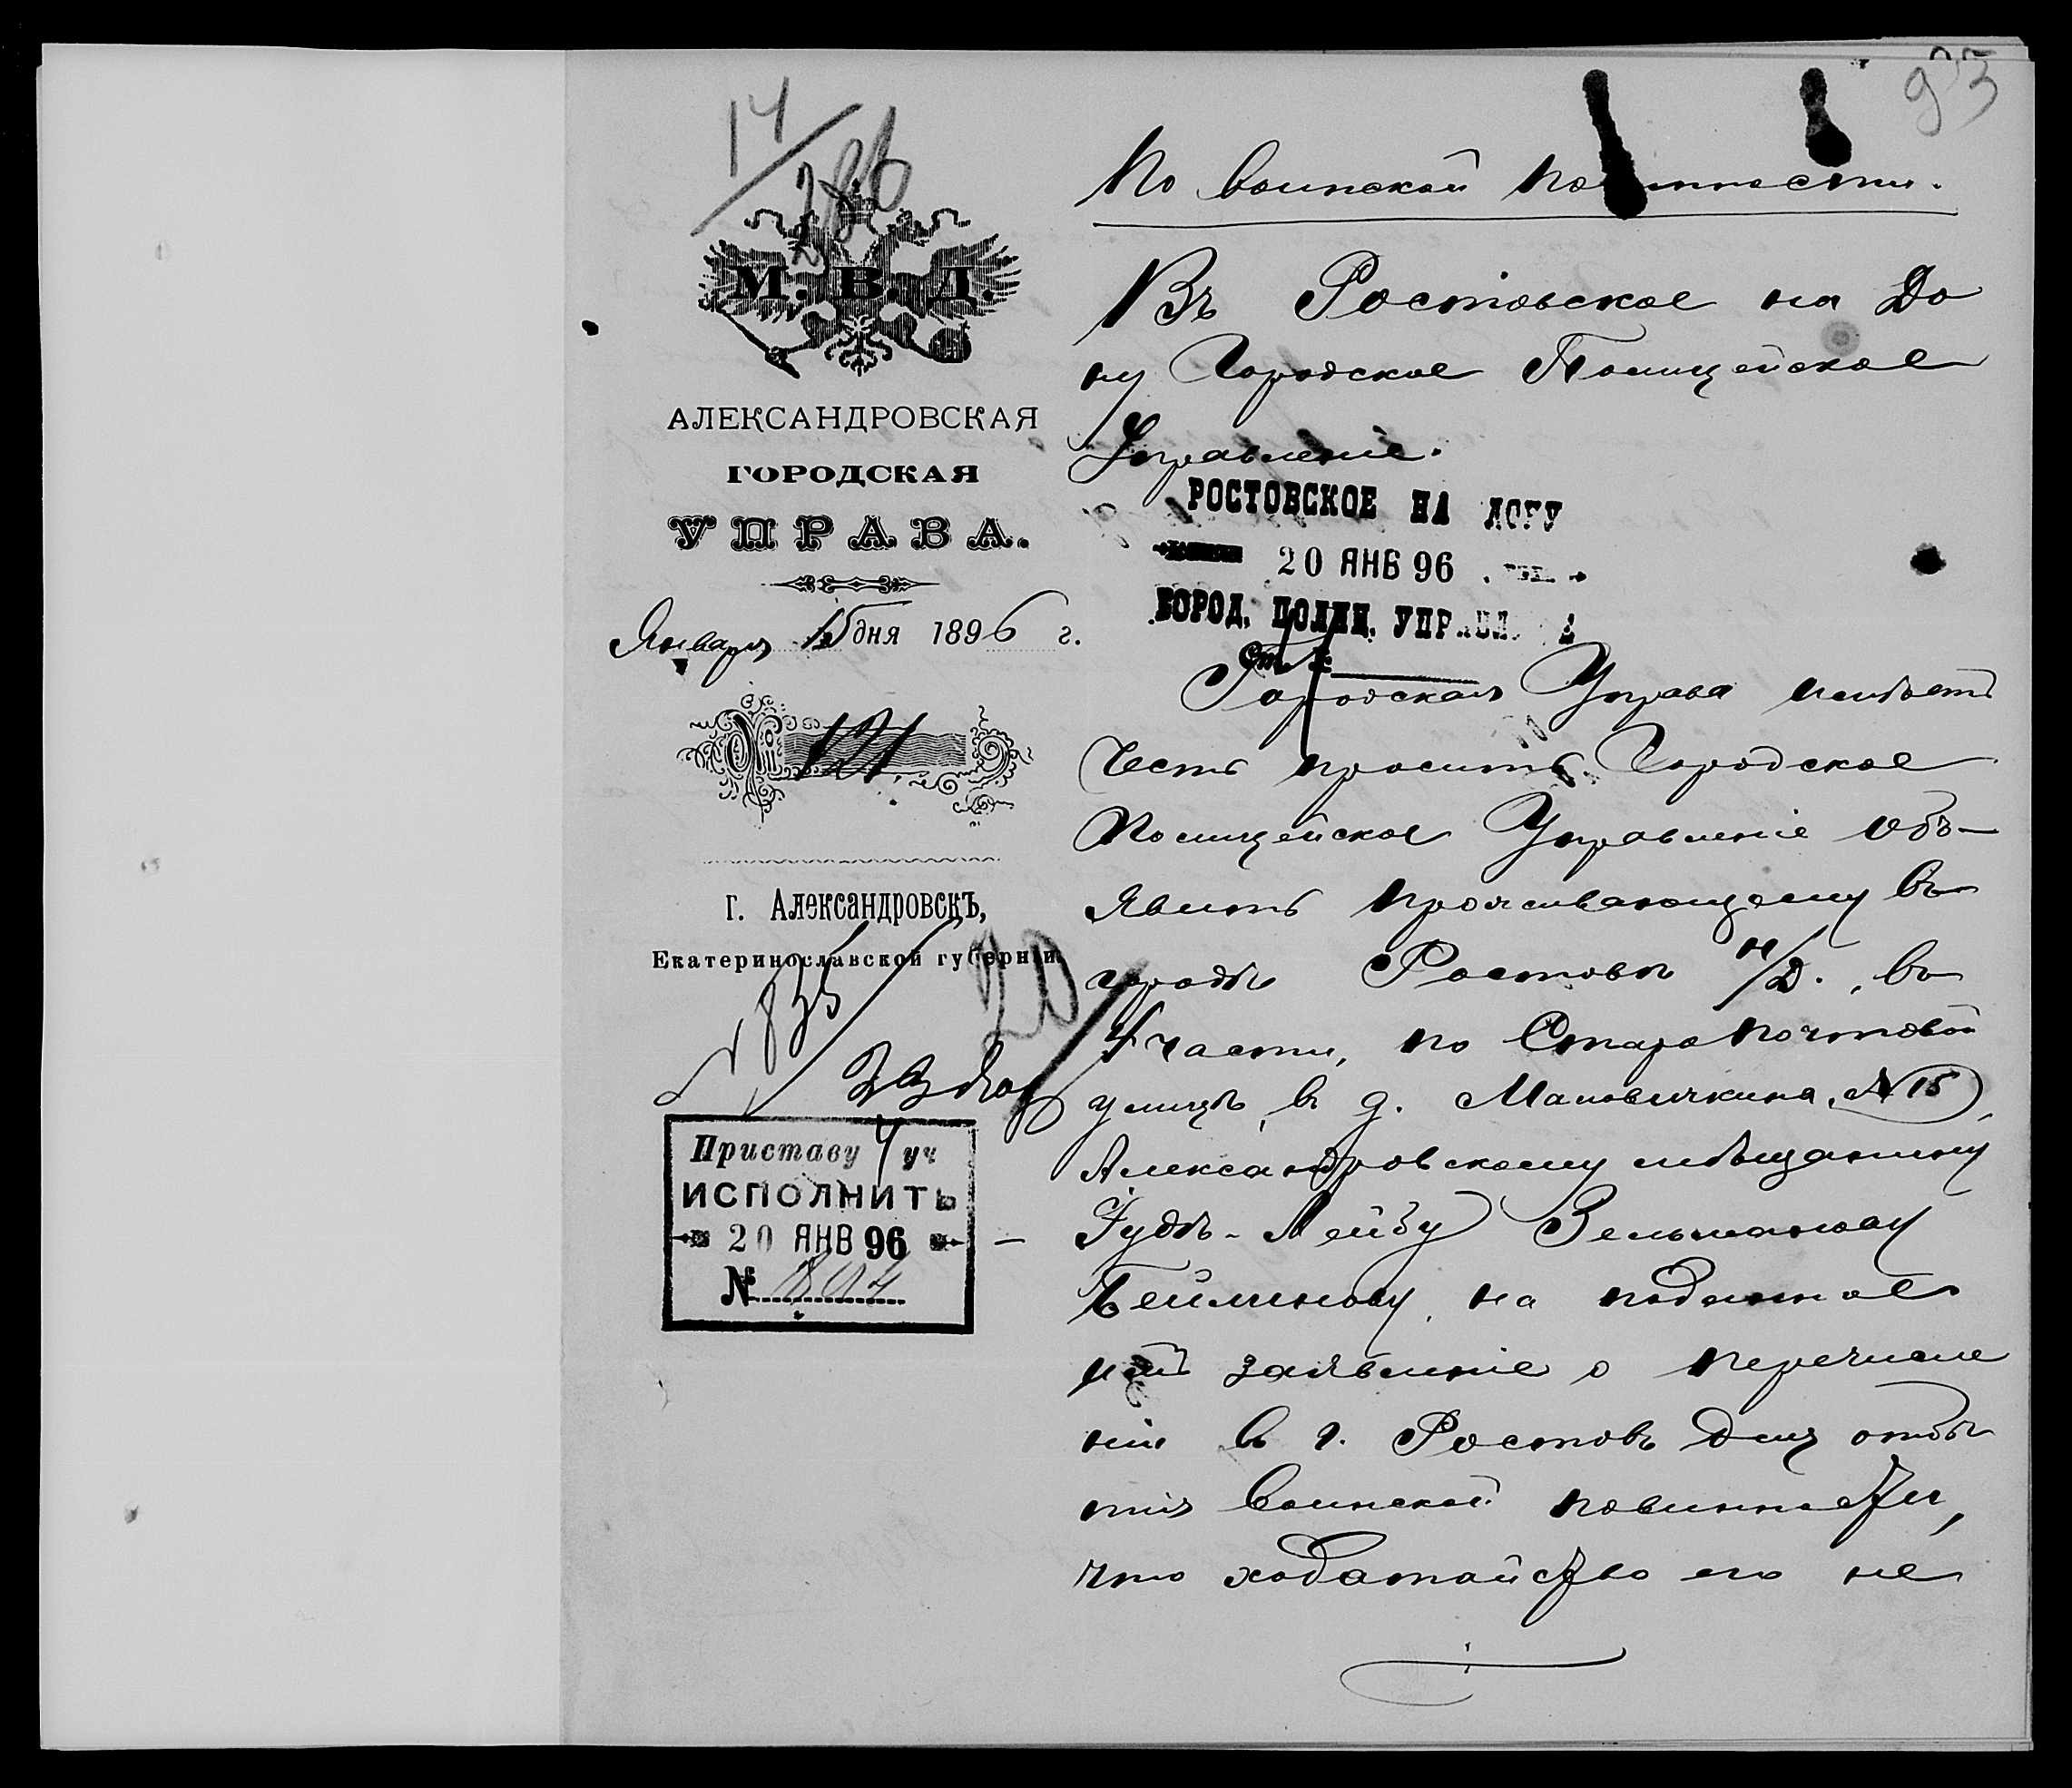 93
14/286
М. В. Д.
АЛЕКСАНДРОВСКАЯ
ГОРОДСКАЯ
УПРАВА.
Января 15 дня 1896 г.
№ 121
г. Александровскъ,
Екатеринославской губерніи
20
Приставу 4 уч
ИСПОЛНИТЬ
20 ЯНВ 96
№
По воинской повинности.
Въ Ростовское на До
ну Городское Полицейское
Управленіе.
РОСТОВСКОЕ НА ДОНУ
20 ЯНВ 96
ГОРОД. ПОЛИЦ. УПРАВЛ.
Ст.
Городская Управа имѣетъ
честь просить Городское
Полицейское Управленіе объ-
явить проживающему въ
городѣ Ростовѣ н/Д., въ
4 части, по Старо почтовой
улицѣ, въ д. № 15,
Александровскому мѣщанину
Іудѣ-Лейбу Зельманову
Бейлинову, на поданное
имъ заявленіе о перечисле
ніи въ г. Ростовъ для отбы
тія воинской повинности,
что ходатайство его не